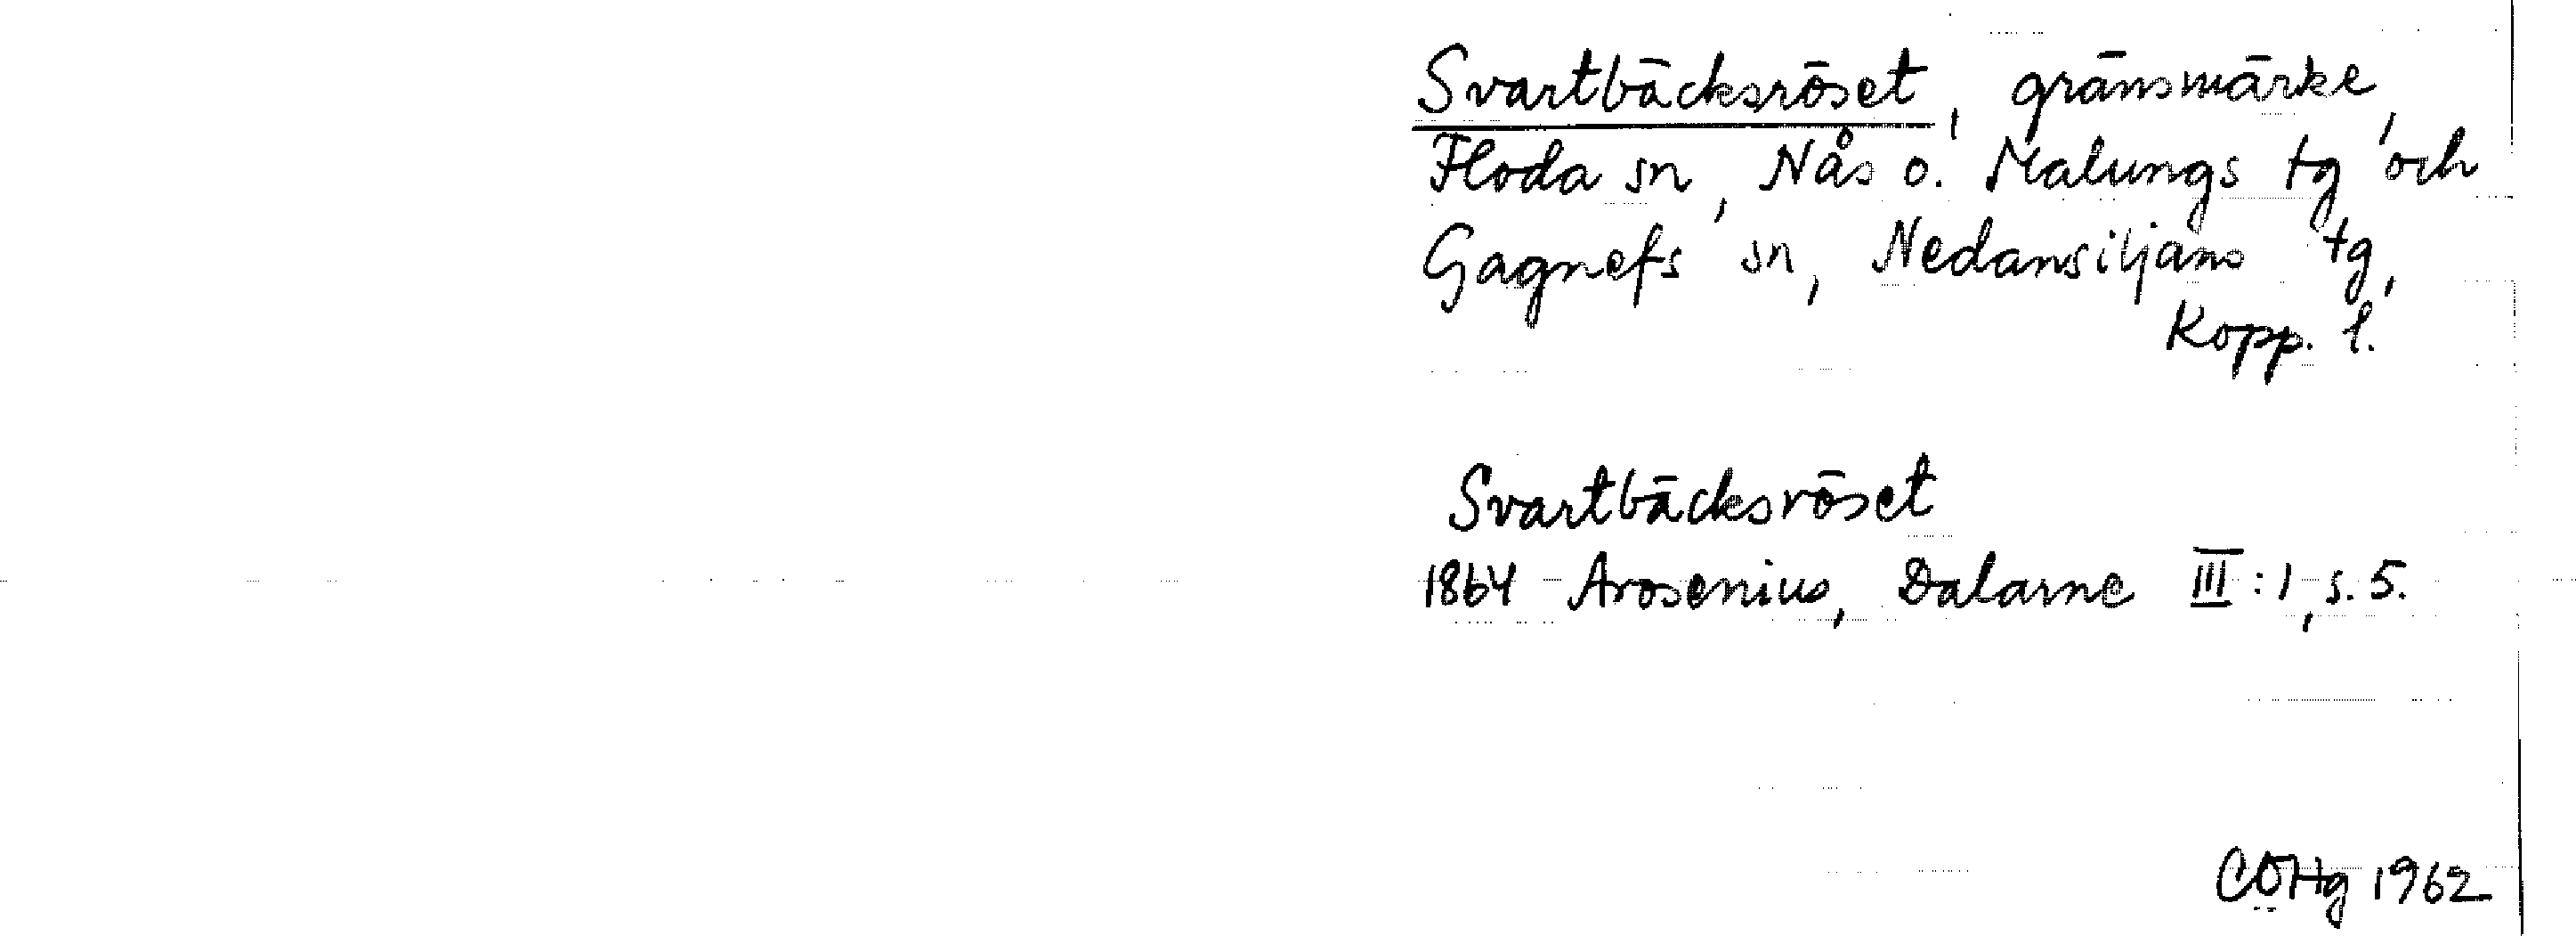 Svartbäcksröset, gränsmärke,
Floda sn, Nås o. Malungs tg och
Gagnefs sn, Nedansiljans tg,
Kopp. l.
Svartbäcksröset
1864 Arosenius, Dalarne III:1, s. 5.
COHg 1962